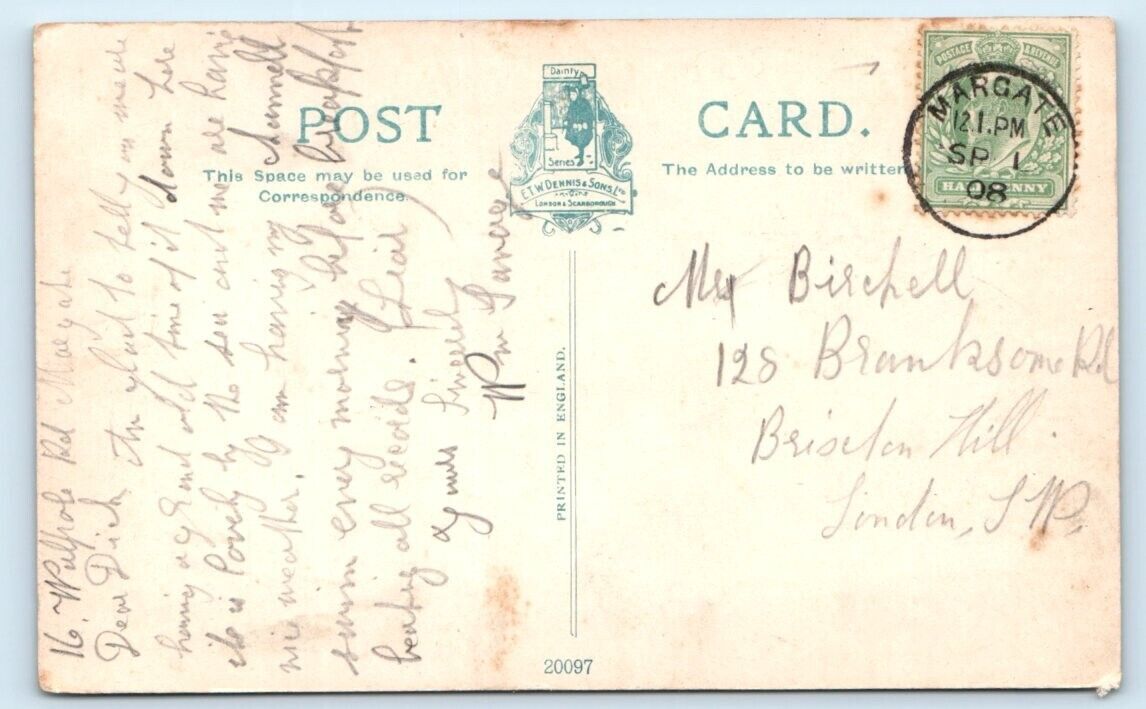 POST
CARD.
This Space may be used for
Correspondence.
The Address to be written
Dainty
Series
E.T.W. DENNIS & SONS, LTD
LONDON & SCARBOROUGH
POSTAGE & REVENUE
HALFPENNY
MARGATE
12.1.PM
SP 1
08
16. Walpole Rd Margate
Dear Dick to tell you we are
having a good old time of it down here
it is lovely by the sea and we are having
nice weather. I am having my channell
swim every morning before breakfast
beating all records. (Liar)
Yours Sincerely
Wm Savage
Mr Birchell
128 Branksome Rd
Brixton Hill
London, S.W.
PRINTED IN ENGLAND.
20097